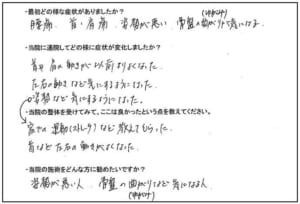 ・最初どの様な症状がありましたか？
(ゆがみ)
腰痛　首・肩痛　姿勢が悪い　骨盤の曲がりが気になる
・当院に通院してどの様に症状が変化しましたか？
首や肩の動きが以前よりよくなった。
左右の動きなど気にするようになった。
姿勢など気にするようになった。
・当院の整体を受けてみて、ここは良かったという点を教えてください。
家での運動(ストレッチ)など教えてもらった。
首など左右の動きがよくなった。
・当院の施術をどんな方に勧めたいですか？
姿勢が悪い人　骨盤の曲がりなど気になる人
(ゆがみ)